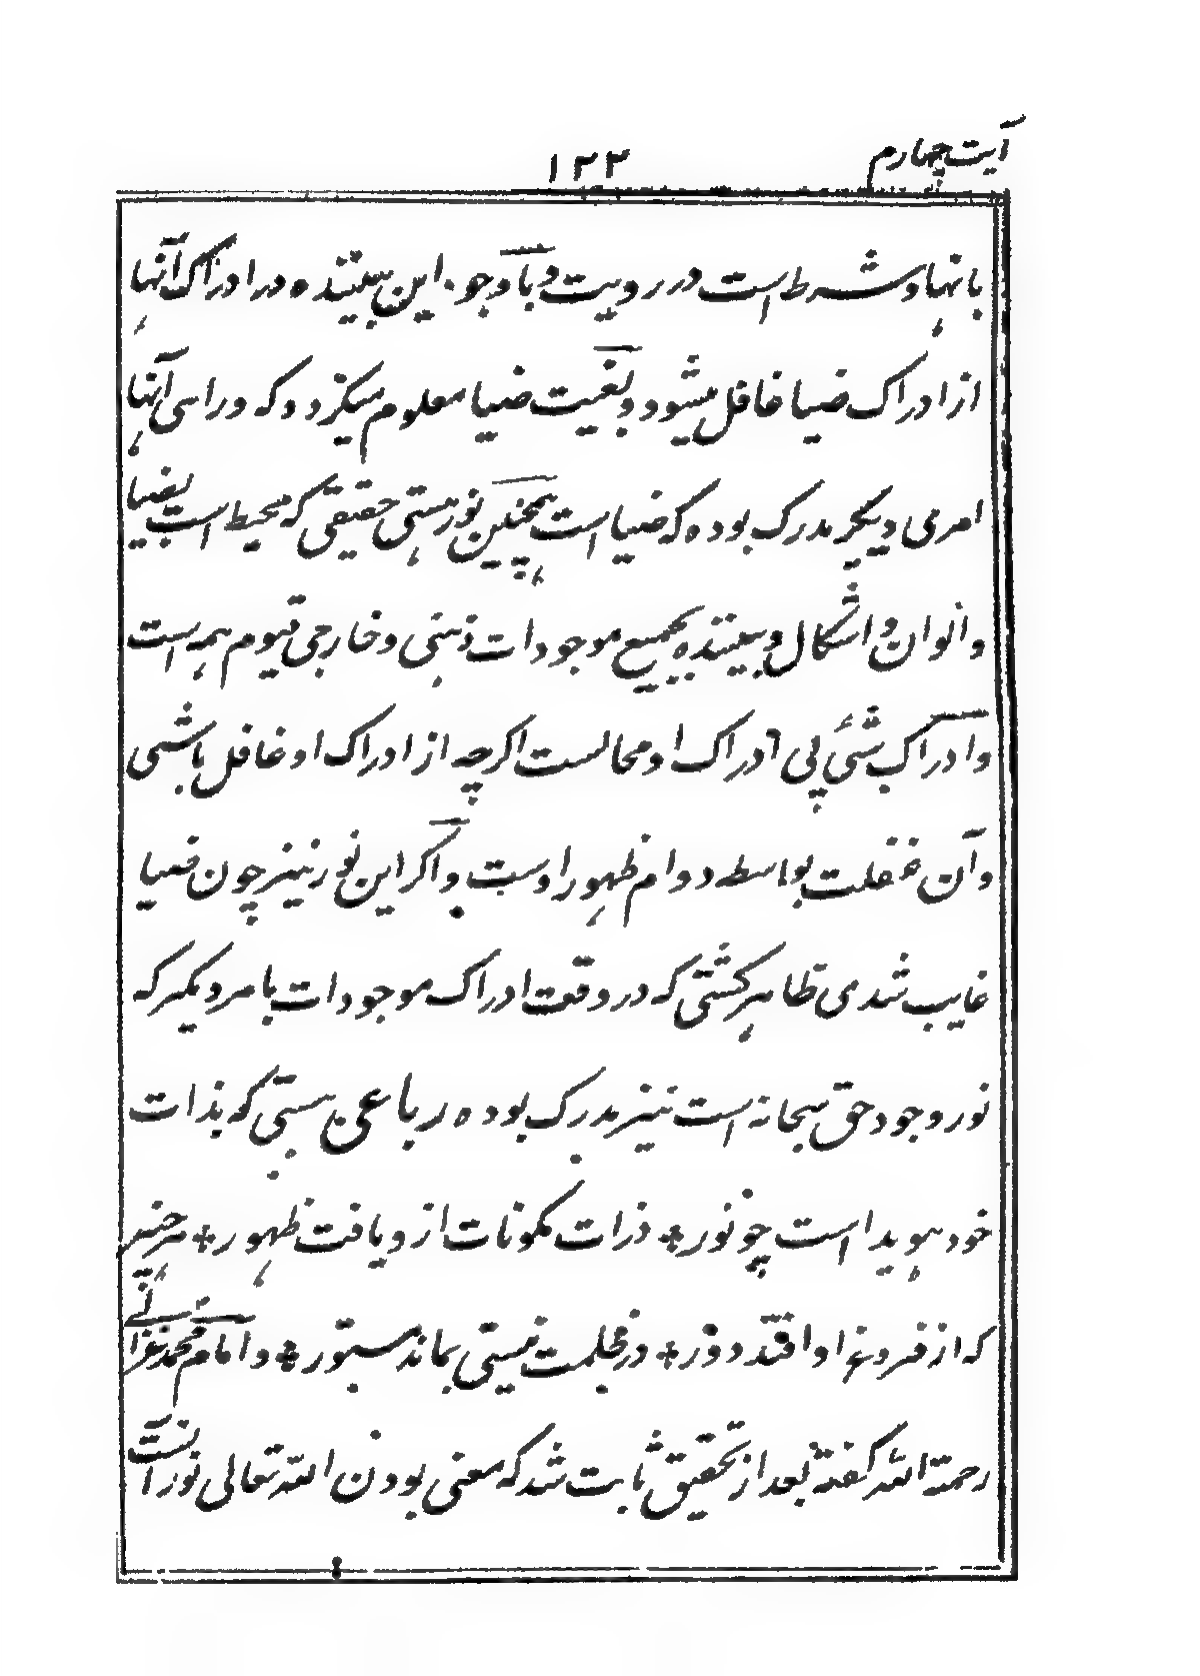 آیت چهارم
۱۲۲
بانها و شرط است در رویت و با وجود این بیننده در ادراک آنها
از ادراک ضیا غافل میشود و بغیبت ضیا معلوم میکردد که ورای آنها
امری دیکر مدرک بوده که ضیا است همچنین نور هستی حقیقی که محیط است بضیا
و الوان و اشکال و بیننده بجمیع موجودات ذهنی و خارجی قیوم همه است
و ادراک شئی بی ادراک او محالست اکرچه از ادراک او غافل باشی
و آن غفلت بواسطه دوام ظهور اوست و اکر این نور نیز چون ضیا
غایب شدی ظاهر کشتی که در وقت ادراک موجودات بامر دیکر که
نور وجود حق سبحانه است نیز مدرک بوده رباعی هستی که بذات
خود هویداست چو نور * ذرات مکونات ازو یافت ظهور * هر چیز
که از فروغ او افتد دور * در ظلمت نیستی بماند مستور * و امام محمد غزالی
رحمة الله کفته بعد از تحقیق ثابت شد که معنی بودن الله تعالی نور آنست